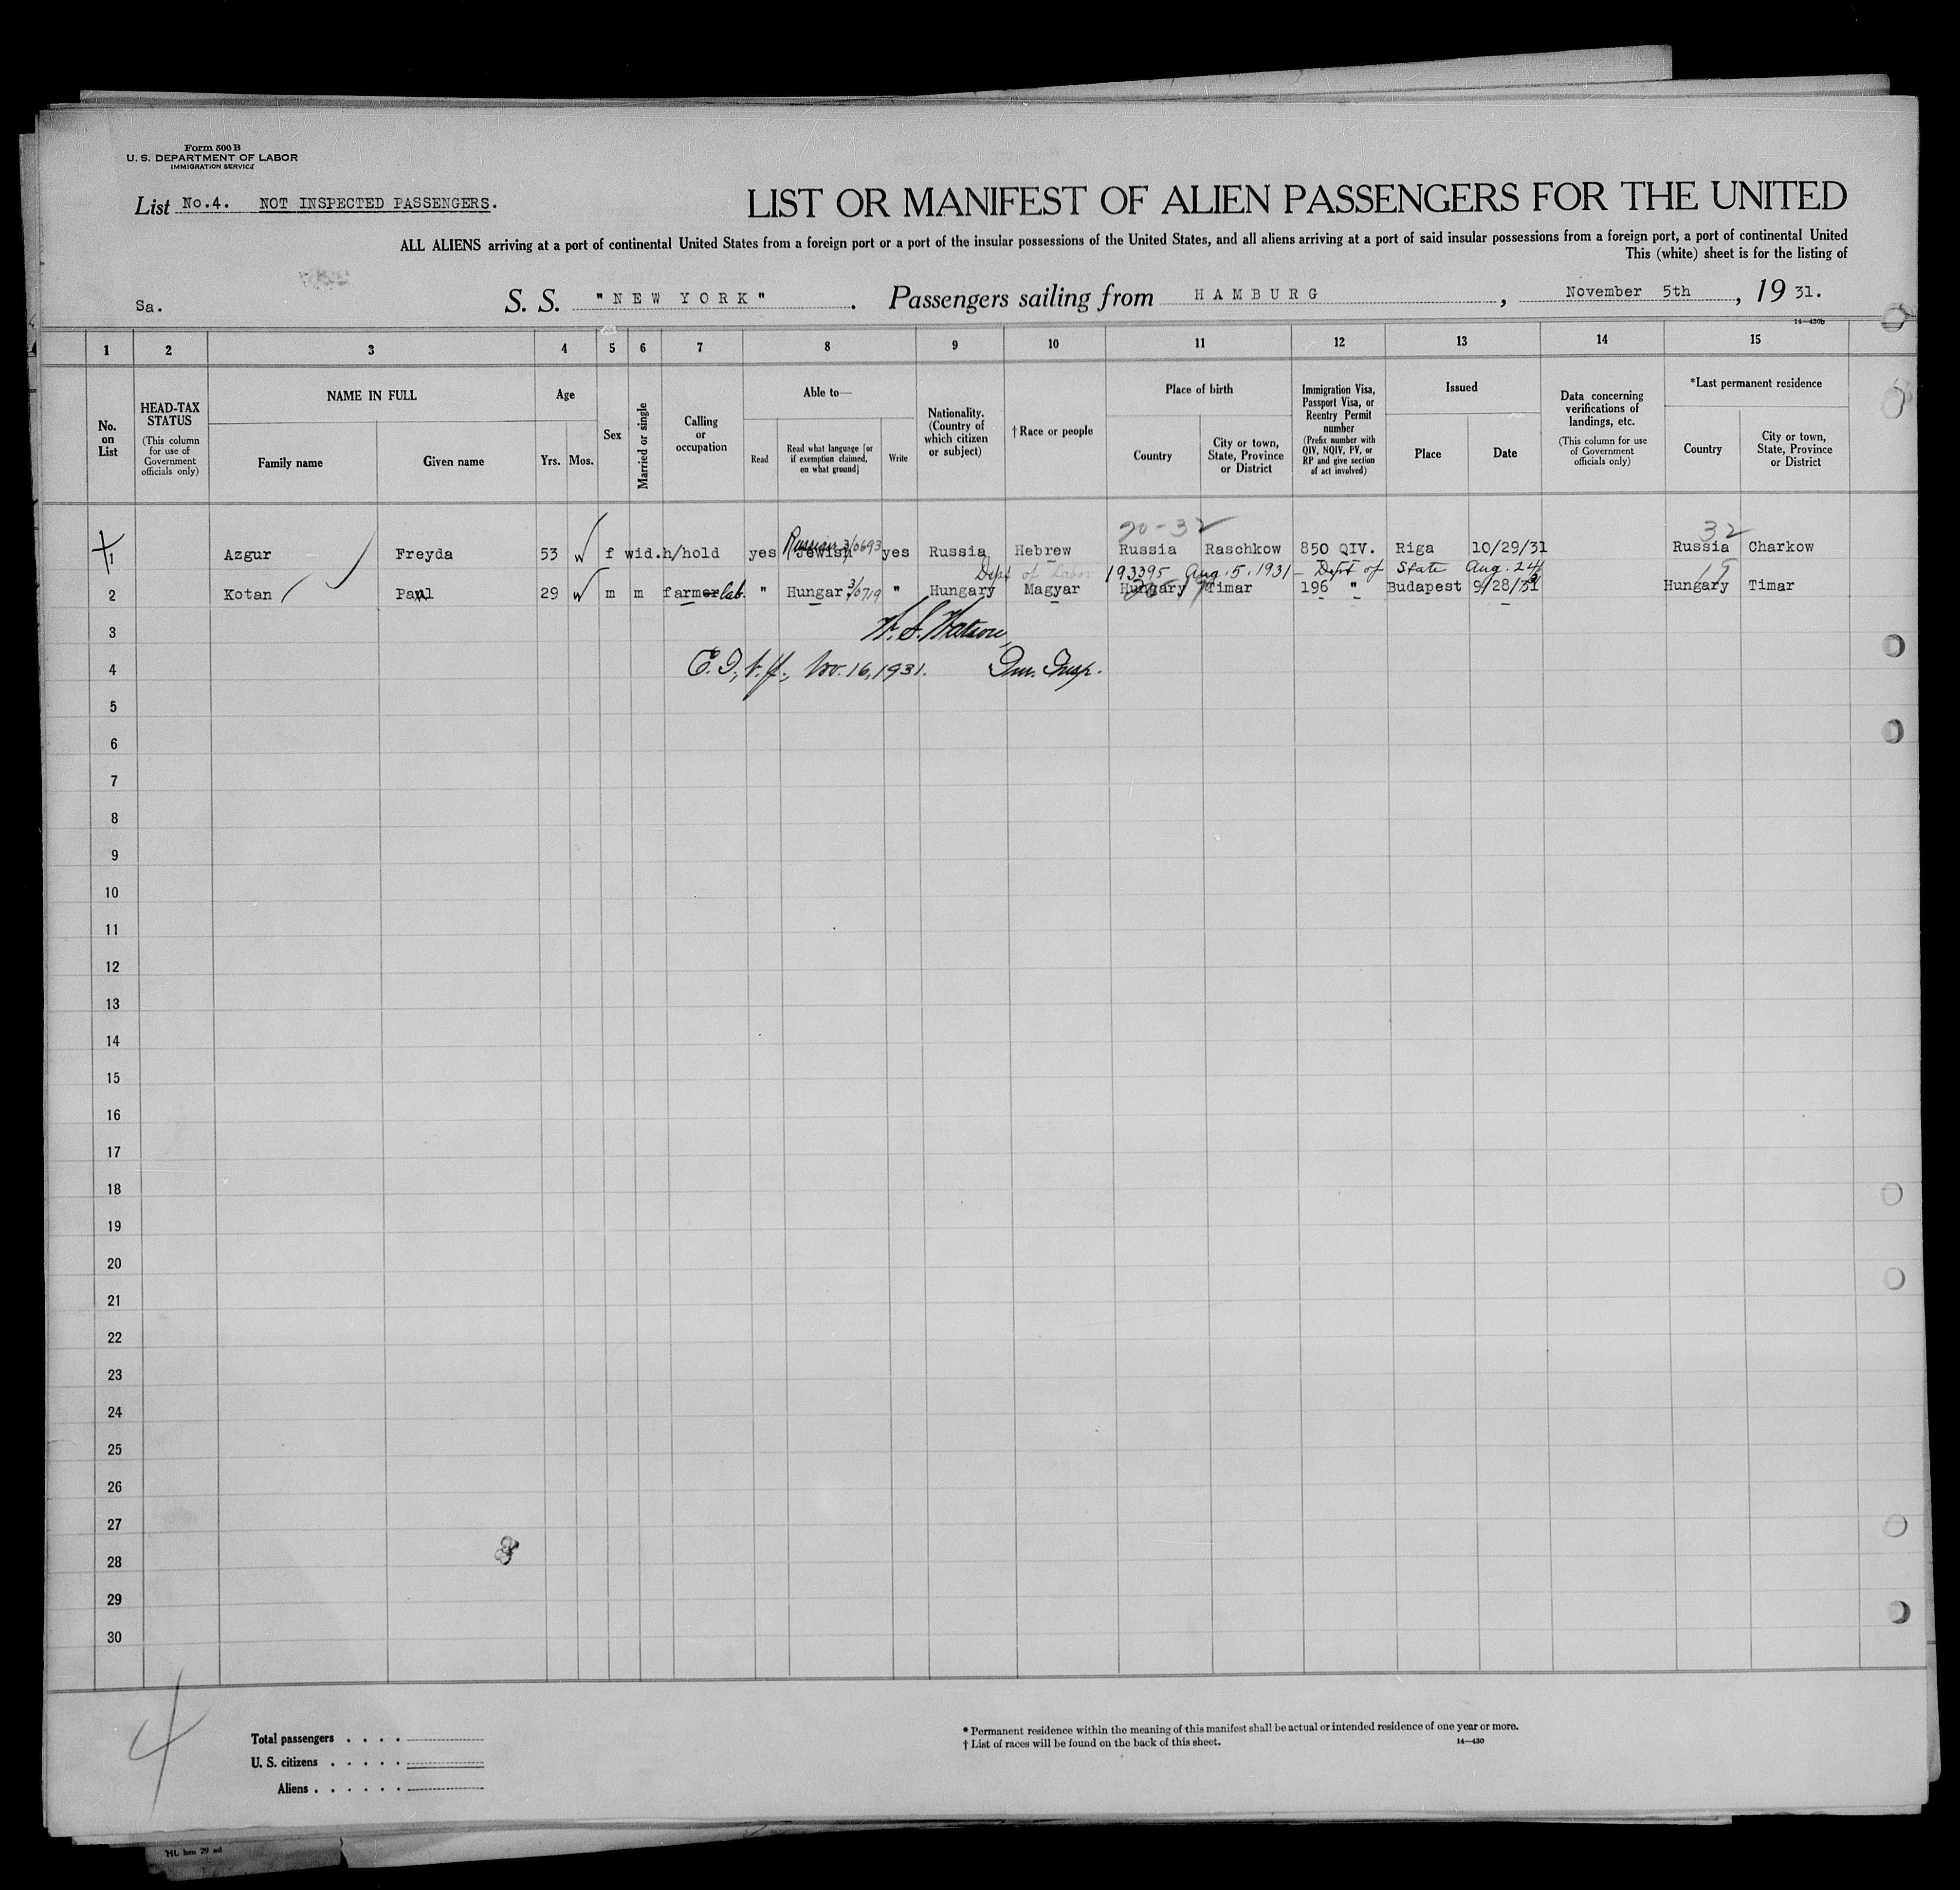 Form 500 B
U. S. DEPARTMENT OF LABOR
IMMIGRATION SERVICE
List No.4. NOT INSPECTED PASSENGERS.
LIST OR MANIFEST OF ALIEN PASSENGERS FOR THE UNITED
ALL ALIENS arriving at a port of continental United States from a foreign port or a port of the insular possessions of the United States, and all aliens arriving at a port of said insular possessions from a foreign port, a port of continental United
This (white) sheet is for the listing of
Sa. S. S. "NEW YORK" . Passengers sailing from HAMBURG , November 5th , 19 31.
14—430b
1 2 3 4 5 6 7 8 9 10 11 12 13 14 15
No. on List
HEAD-TAX STATUS (This column for use of Government officials only)
NAME IN FULL
Family name Given name
Age
Yrs. Mos.
Sex
Married or single
Calling or occupation
Able to—
Read Read what language [or if exemption claimed, on what ground] Write
Nationality. (Country of which citizen or subject)
†Race or people
Place of birth
Country City or town, State, Province or District
Immigration Visa, Passport Visa, or Reentry Permit number (Prefix number with QIV, NQIV, PV, or RP and give section of act involved)
Issued
Place Date
Data concerning verifications of landings, etc. (This column for use of Government officials only)
*Last permanent residence
Country City or town, State, Province or District
20-32 32
1 Azgur Freyda 53 w f wid. h/hold yes Russian Jewish 3/0693 yes Russia Hebrew Russia Raschkow 850 QIV. Riga 10/29/31 Russia Charkow
Dept of Labor 193395 Aug. 5, 1931 – Dept of State Aug. 24 19
2 Kotan Paul 29 w m m farmer lab. " Hungar 3/0719 " Hungary Magyar Hungary Timar 196 " Budapest 9/28/31 Hungary Timar
3 Watson
4 Nov. 16, 1931. Imm. Insp.
5
6
7
8
9
10
11
12
13
14
15
16
17
18
19
20
21
22
23
24
25
26
27
28
29
30
4
Total passengers . . . .
U. S. citizens . . . . .
Aliens . . . . . .
* Permanent residence within the meaning of this manifest shall be actual or intended residence of one year or more.
† List of races will be found on the back of this sheet.
14—430